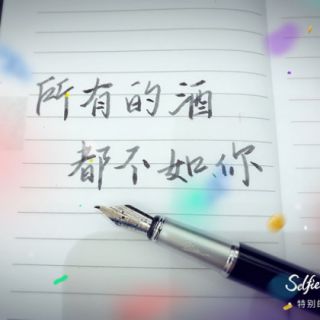 所有的酒
都不如你
Selfie
特别的